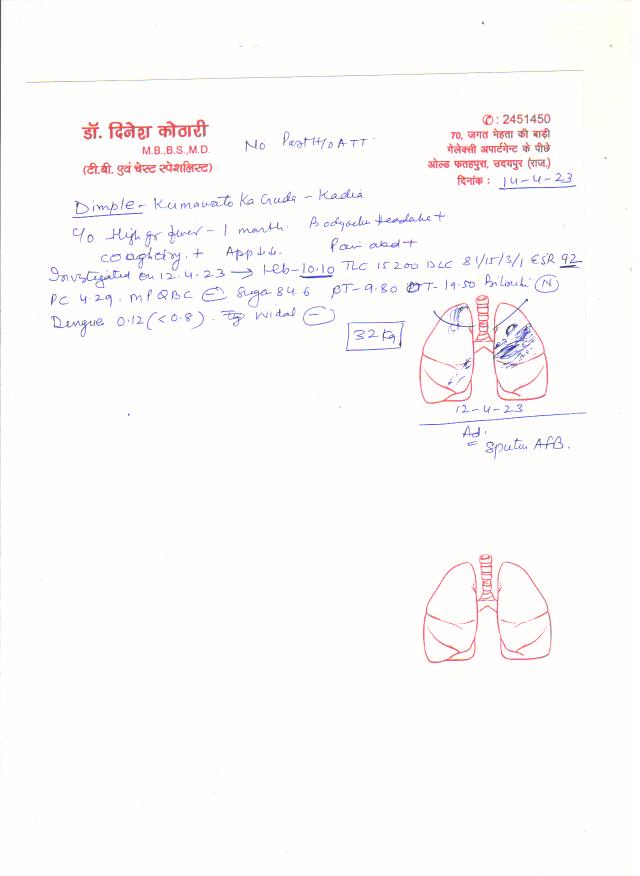 डॉ. दिनेश कोठारी
M.B.,B.S.,M.D.
(टी.बी. एवं चेस्ट स्पेशलिस्ट)
No Past H/o ATT.
✆ : 2451450
70, जगत मेहता की बाड़ी
गेलेक्सी अपार्टमेन्ट के पीछे
ओल्ड फतहपुरा, उदयपुर (राज.)
दिनांक : 14-4-23
Dimple - Kumawato Ka Guda - Kadia
C/o High gr fever - 1 month. Bodyache Headache +
cough dry + App ↓↓. Pain abd +
Investigated on 12.4.23 → Hb-10.10 TLC 15200 DLC 81/15/3/1 ESR 92
PC 4.29. MP QBC (-) Sugar 84.6 PT-9.80 OT-19.50 Bilirubin (N)
Dengue 0.12 (<0.8). Widal (-)
32 Kg
12-4-23
Ad.
= Sputum AFB.